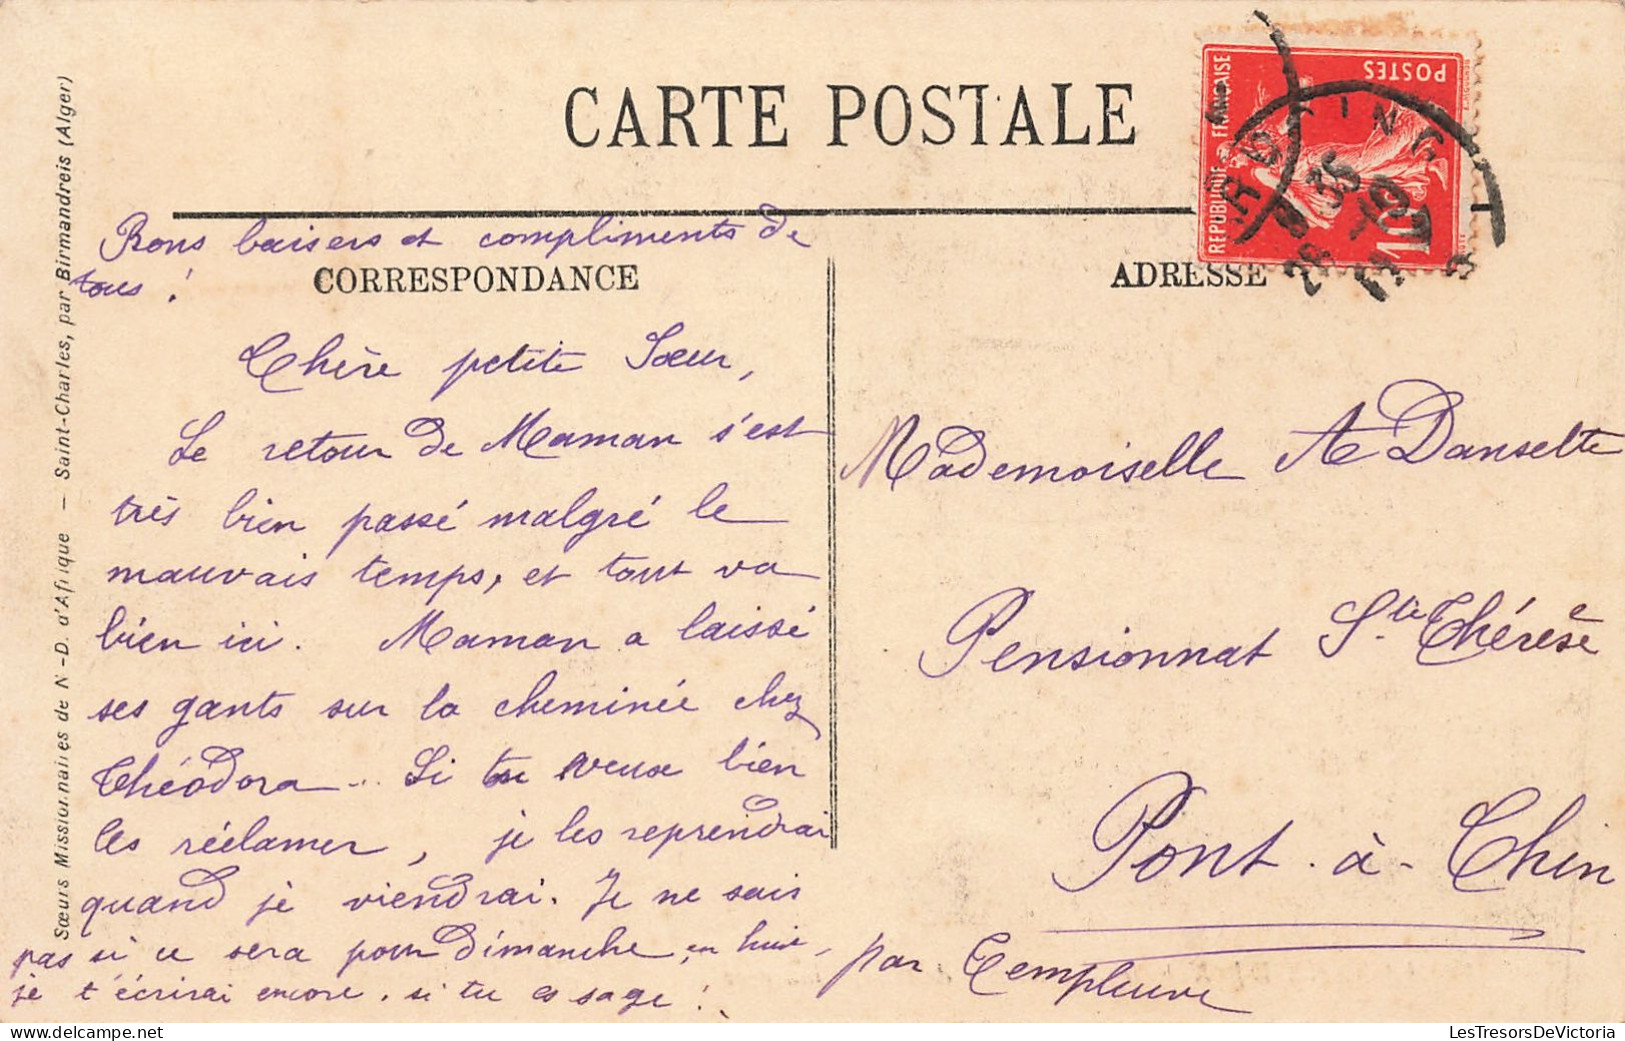 CARTE POSTALE
RÉPUBLIQUE FRANÇAISE
POSTES
10
Bons baisers et compliments de
tous !
CORRESPONDANCE
ADRESSE
Chère petite Sœur,
Le retour de Maman s'est
très bien passé malgré le
mauvais temps, et tout va
bien ici. Maman a laissé
ses gants sur la cheminée chez
Théodora... Si tu veux bien
les réclamer, je les reprendrai
quand je viendrai. Je ne sais
pas si ce sera pour Dimanche, en huit,
je t'écrirai encore. si tu es sage !
Mademoiselle A Danselte
Pensionnat Ste Thérèse
Pont-à-Chin
par Templeuve
Sœurs Missionnaires de N.-D. d'Afrique — Saint-Charles, par Birmandreis (Alger)
LesTresorsDeVictoria